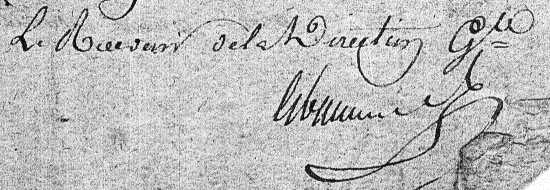 Le Receveur de la Direction G<sup>le</sup>